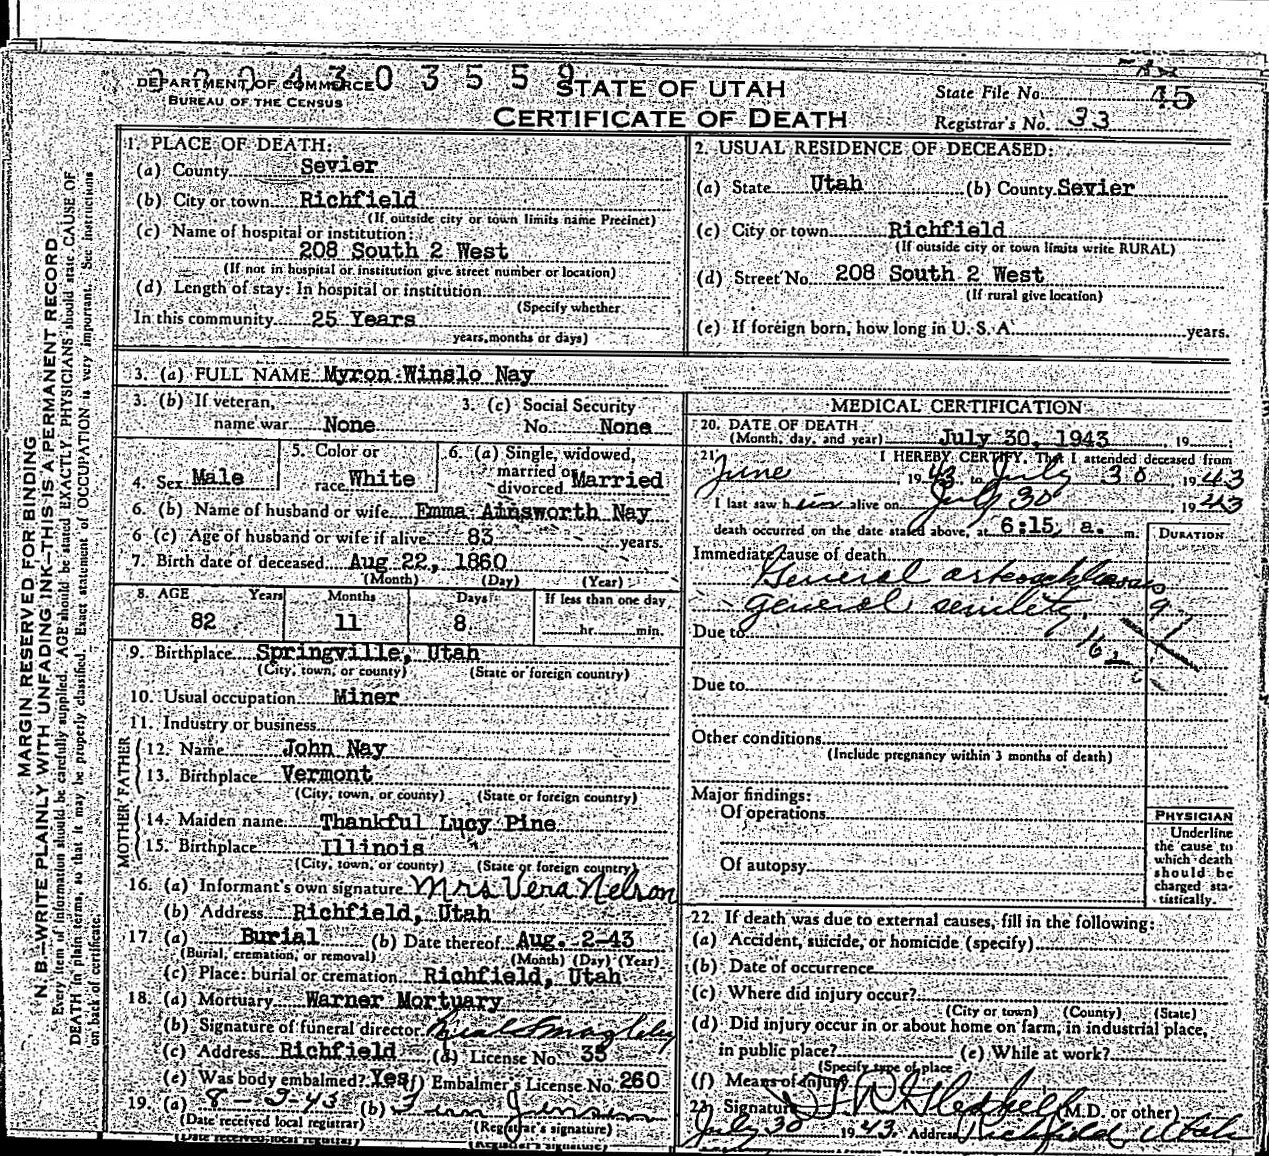 0 0 0 4 3 0 3 5 5 9
DEPARTMENT OF COMMERCE
BUREAU OF THE CENSUS
STATE OF UTAH
CERTIFICATE OF DEATH
State File No. 45
Registrar's No. 33
MARGIN RESERVED FOR BINDING
N. B.—WRITE PLAINLY WITH UNFADING INK—THIS IS A PERMANENT RECORD
Every item of information should be carefully supplied. AGE should be stated EXACTLY. PHYSICIANS should state CAUSE OF
DEATH in plain terms, so that it may be properly classified. Exact statement of OCCUPATION is very important. See instructions
on back of certificate.
1. PLACE OF DEATH:
(a) County Sevier
(b) City or town Richfield
(If outside city or town limits name Precinct)
(c) Name of hospital or institution:
208 South 2 West
(If not in hospital or institution give street number or location)
(d) Length of stay: In hospital or institution
(Specify whether
In this community 25 Years
years, months or days)
2. USUAL RESIDENCE OF DECEASED:
(a) State Utah (b) County Sevier
(c) City or town Richfield
(If outside city or town limits write RURAL)
(d) Street No. 208 South 2 West
(If rural give location)
(e) If foreign born, how long in U. S. A. years.
3. (a) FULL NAME Myron Winslo Nay
3. (b) If veteran, 3. (c) Social Security
name war None No. None
4. Sex Male 5. Color or race White 6. (a) Single, widowed, married or divorced Married
6. (b) Name of husband or wife Emma Ainsworth Nay
6 (c) Age of husband or wife if alive 83 years.
7. Birth date of deceased Aug 22, 1860
(Month) (Day) (Year)
8. AGE Years Months Days If less than one day
82 11 8 hr. min.
9. Birthplace Springville, Utah
(City, town, or county) (State or foreign country)
10. Usual occupation Miner
11. Industry or business
FATHER
12. Name John Nay
13. Birthplace Vermont
(City, town, or county) (State or foreign country)
MOTHER
14. Maiden name Thankful Lucy Pine
15. Birthplace Illinois
(City, town, or county) (State or foreign country)
16. (a) Informant's own signature Mrs Vera Nelson
(b) Address Richfield, Utah
17. (a) Burial (b) Date thereof Aug. 2-43
(Burial, cremation, or removal) (Month) (Day) (Year)
(c) Place: burial or cremation Richfield, Utah
18. (a) Mortuary Warner Mortuary
(b) Signature of funeral director
(c) Address Richfield (d) License No. 35
(e) Was body embalmed? Yes (f) Embalmer's License No. 260
19. (a) 8-2-43 (b)
(Date received local registrar) (Registrar's signature)
(Date received local registrar) (Registrar's signature)
MEDICAL CERTIFICATION
20. DATE OF DEATH
(Month, day, and year) July 30, 1943, 19
21. I HEREBY CERTIFY, That I attended deceased from
June, 1943 to July 30, 1943
I last saw him alive on July 30 1943
death occurred on the date stated above, at 6:15 a. m.
DURATION
Immediate cause of death
General
general senility.
Due to
Due to
Other conditions
(Include pregnancy within 3 months of death)
Major findings:
Of operations
Of autopsy
PHYSICIAN
Underline
the cause to
which death
should be
charged sta-
tistically.
22. If death was due to external causes, fill in the following:
(a) Accident, suicide, or homicide (specify)
(b) Date of occurrence
(c) Where did injury occur?
(City or town) (County) (State)
(d) Did injury occur in or about home on farm, in industrial place,
in public place? (e) While at work?
(Specify type of place
(f) Means of injury
23. Signature (M.D. or other)
July 30 1943. Address Richfield, Utah